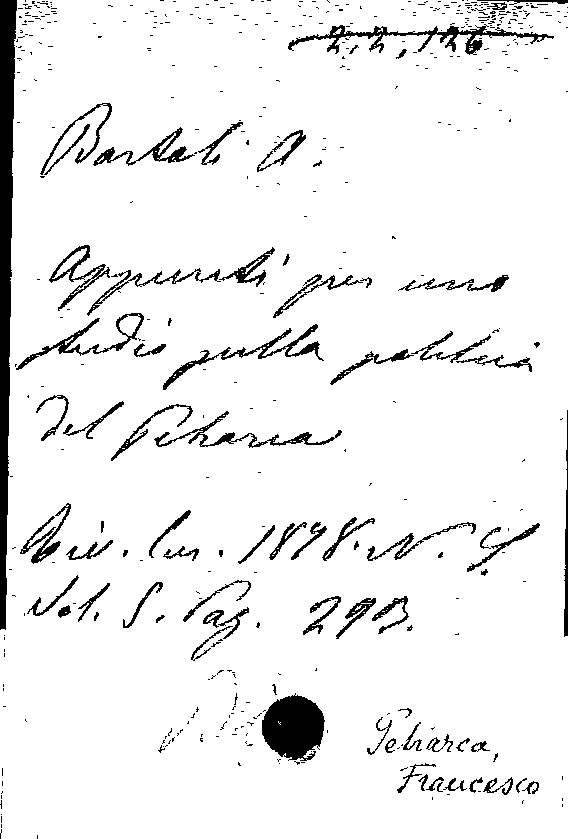 2.2,126
Bartoli A.
Appunti per uno
studio sulla politica
del Petrarca
Riv. Eur. 1878. N. S.
Vol. 5. Pag. 293.
Petrarca,
Francesco